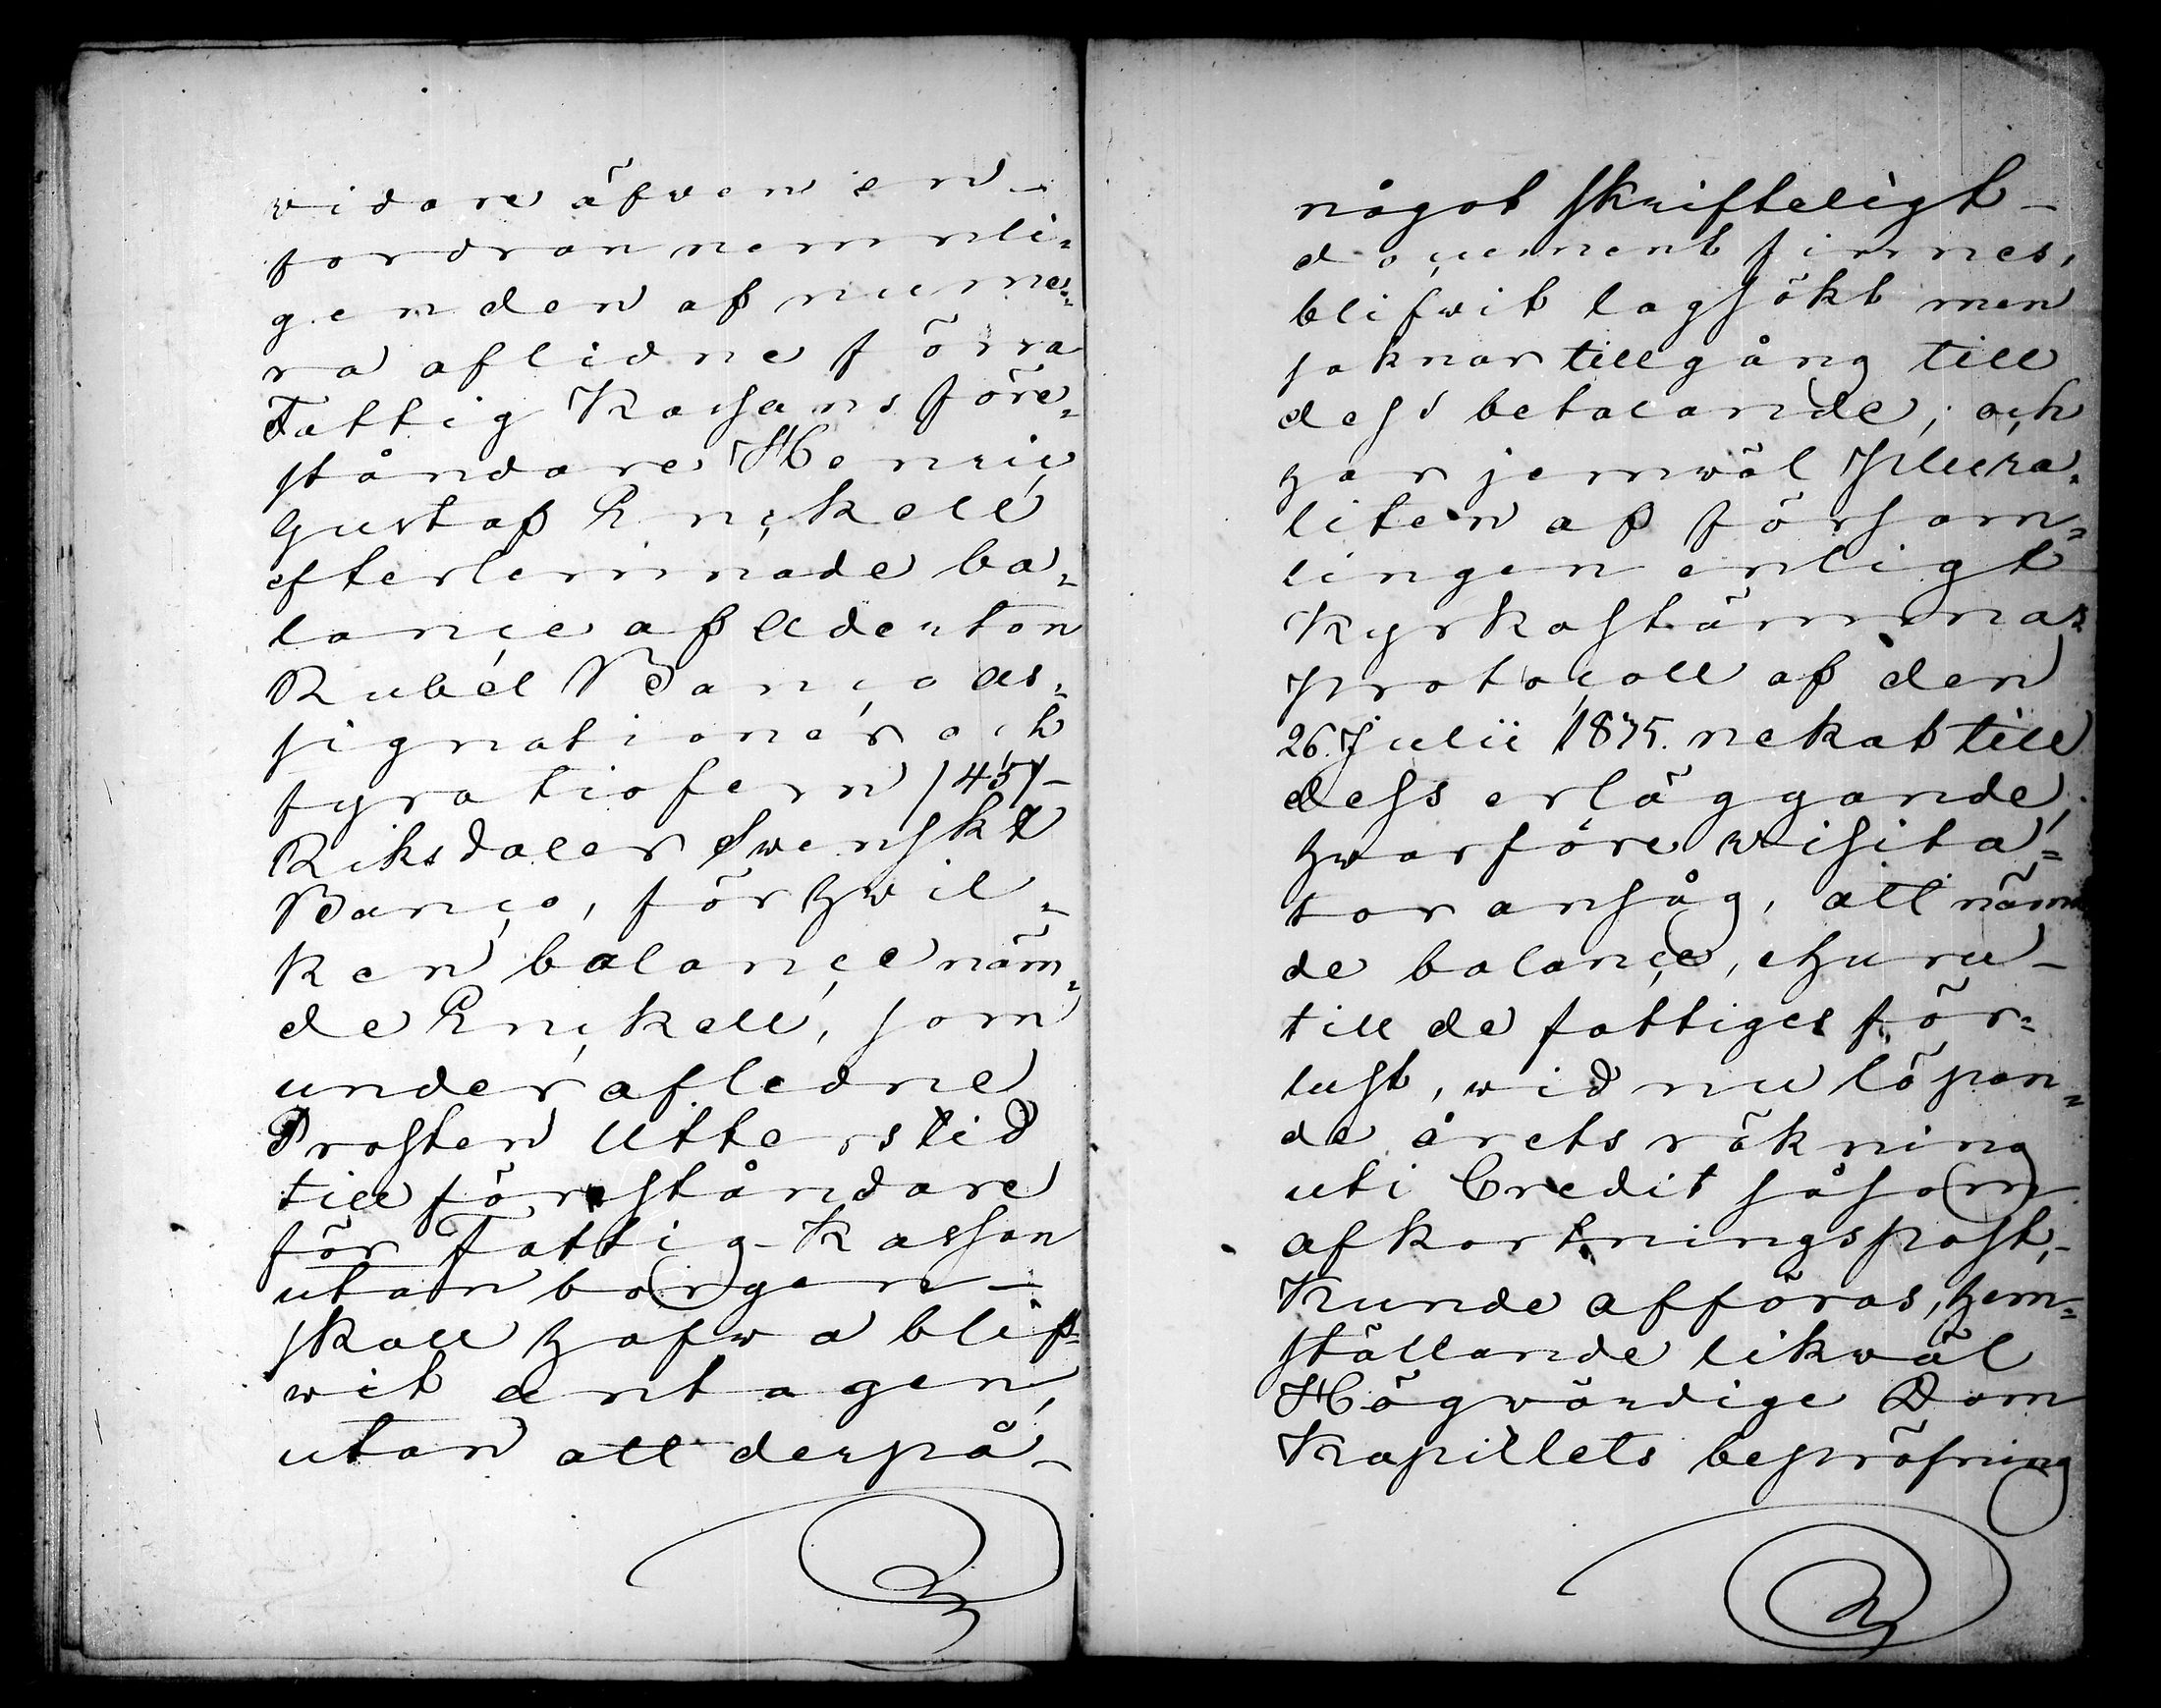 vidare äfven en
fordran nemnli-
gen den af nume-
ra aflidne förra
Fattig Kassans före-
ståndare Henric
Gustaf Enckell
efterlemnade ba-
lance af Aderton
Rubel Banco as-
signationer och
fyratiofem /45/
Riksdaler Svenskt
Banco, för hwil-
ken balance näm-
de Enckell, som
under afledne
Prosten Utters tid
till föreståndare
för Fattig-Kassan
utan borgen
skall hafwa blif-
wit antagen,
utan att derpå
något skrifteligt
document finnes,
blifwit lagsökt men
saknar tillgång till
dess betalande; och
har jemwäl Plura-
liten af försam-
lingen enligt
Kyrkostämmas
protocoll af den
26. Julii 1835. nekat till
dess erläggande,
hwarföre Visita-
tor ansåg, att näm-
de balance, ehuru
till de fattiges för-
lust, wid nu löpan-
de årets räkning
uti Credit såsom
afkortningspost,
kunde afföras, hem-
ställande likwäl
Högvärdige Dom
Kapitlets bepröfning